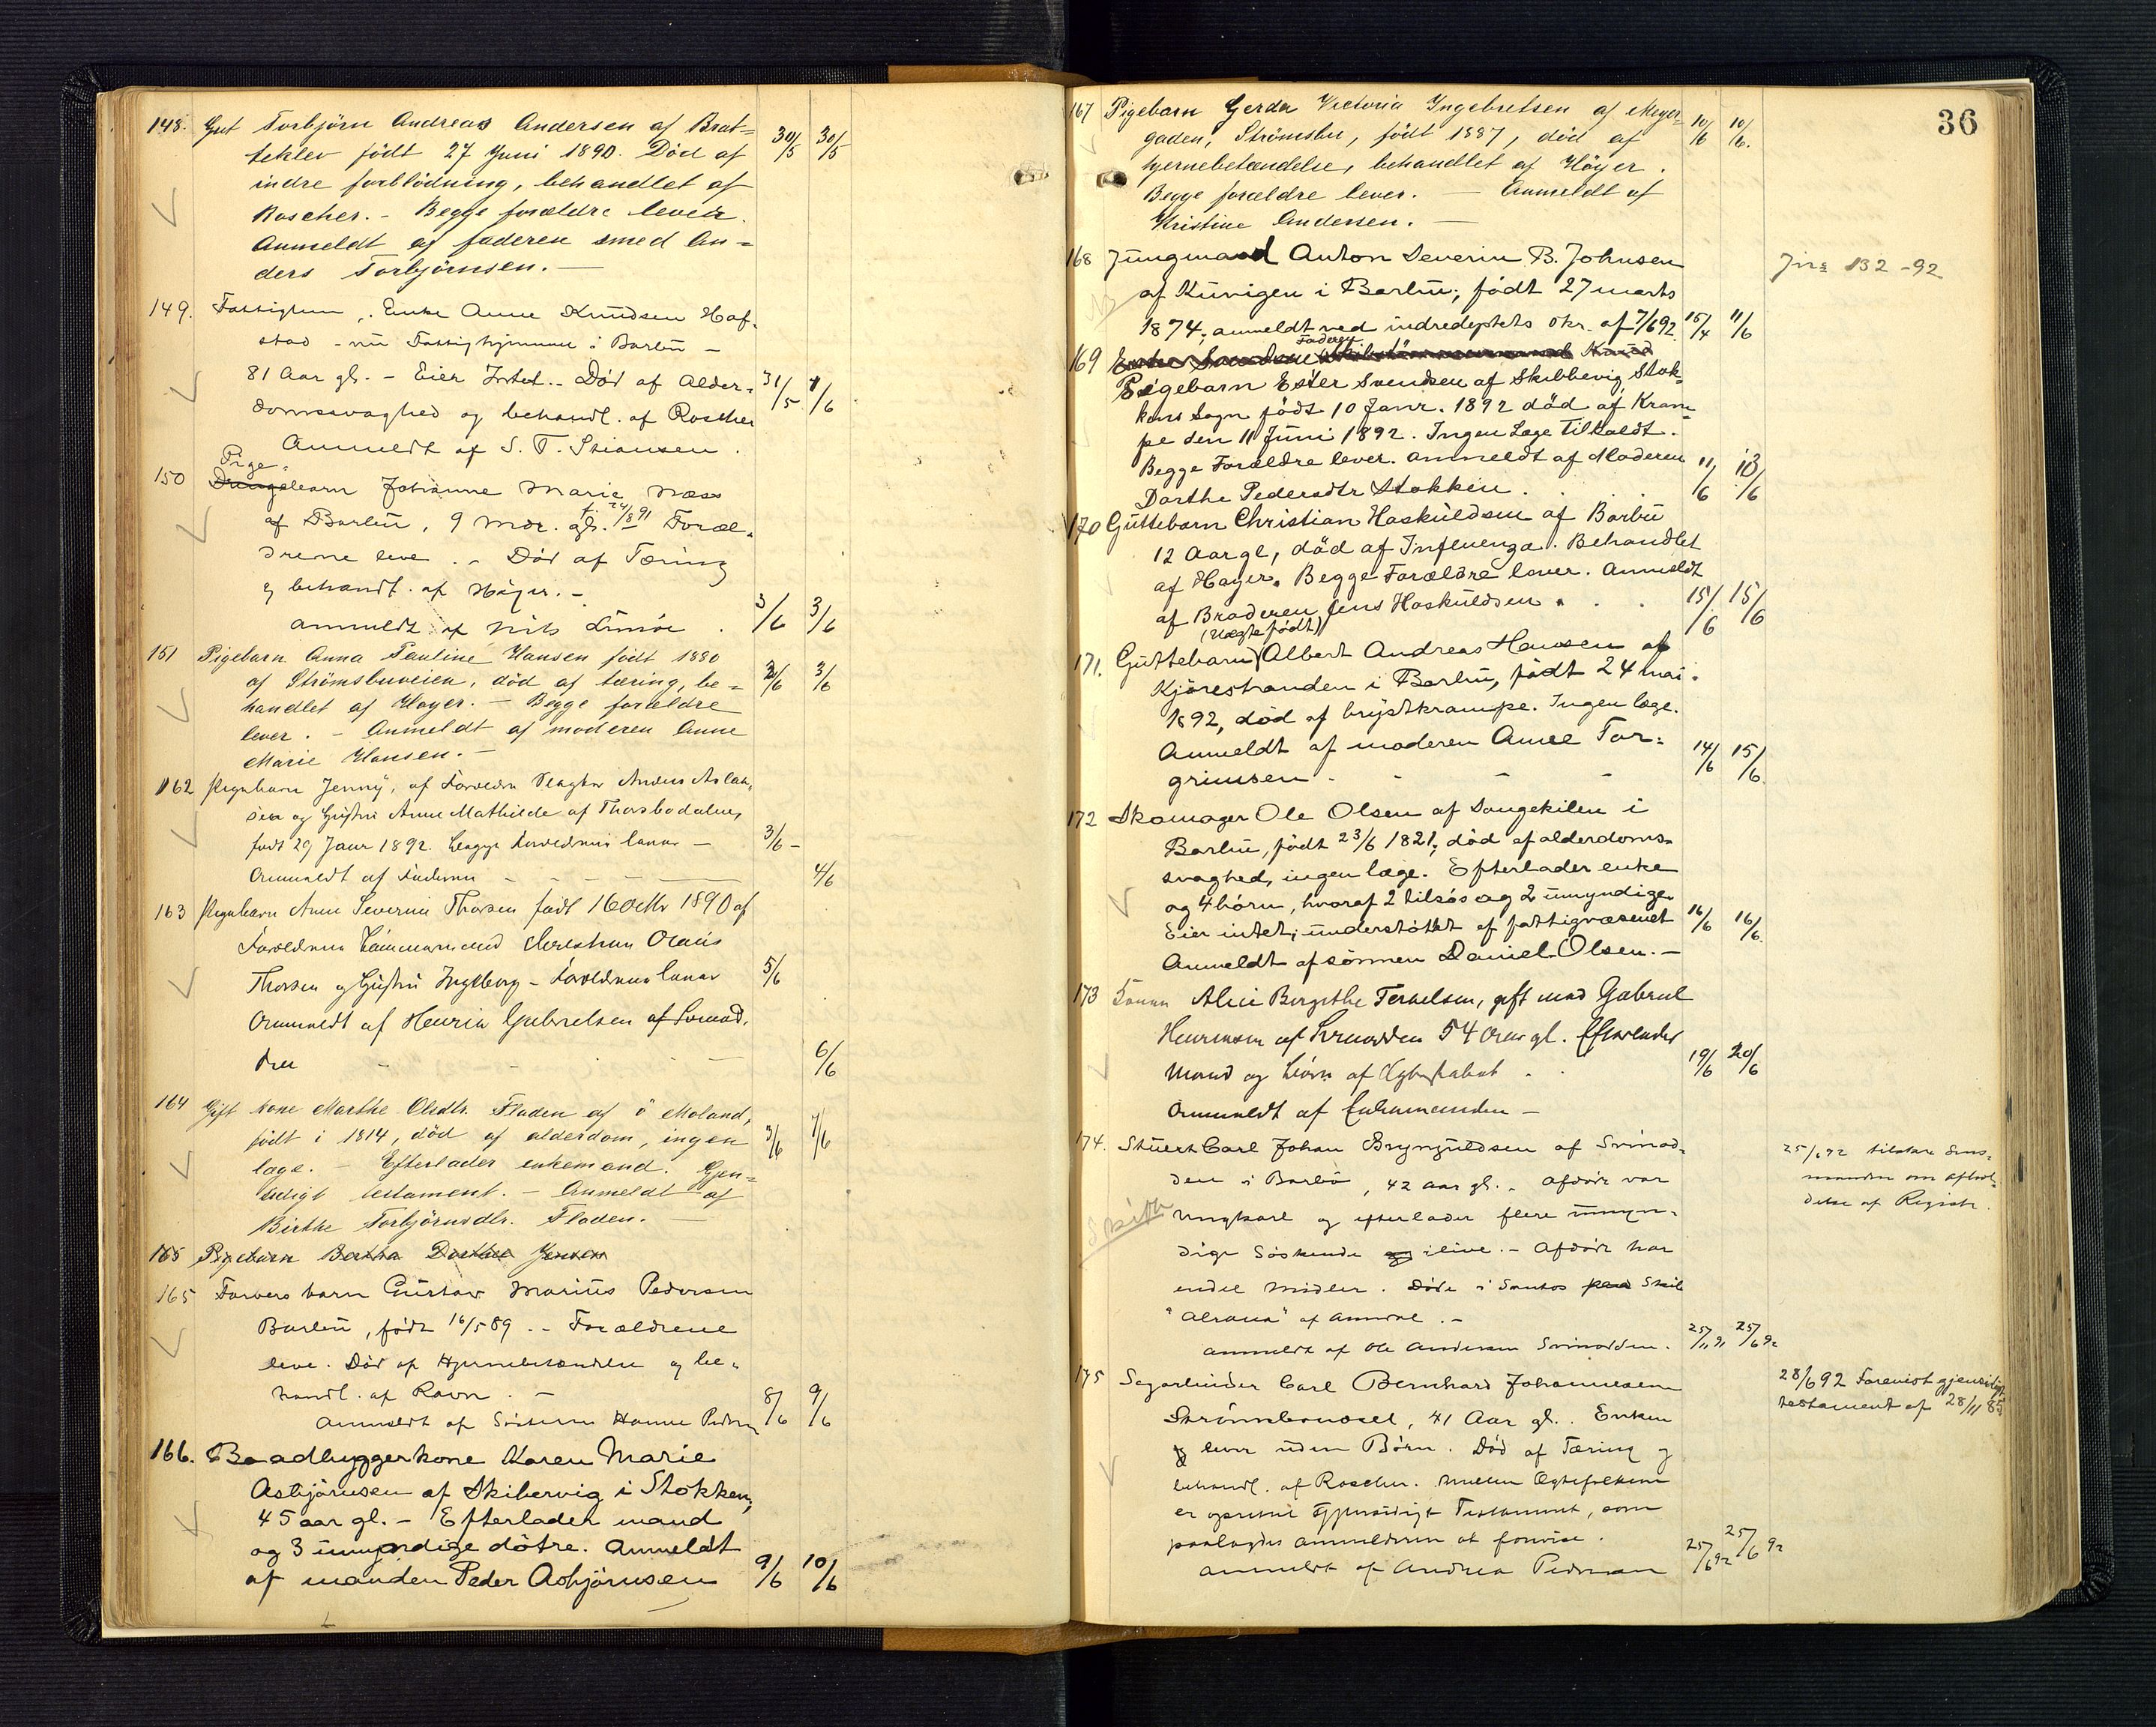 148. Gut Torbjörn Andreas Andersen af Brat=
teklev født 27 Juni 1890. Död af 30/5 30/5
indre forblödning, behandlet af
Roscher. - Begge forældre lever.
Anmeldt af faderen smed An=
ders Torbjörnsen. —
149. Fattiglem, Enke Anne Knudsen Haf=
stad - nu Fattighjemmet i Barbu -
81 Aar gl. - Eier Intet. - Död af Alder= 31/5 1/6
domssvaghed og behandl. af Roscher
Anmeldt af S. T. Stiansen.
Pige
150 Drengebarn Johanne Marie Næss
af Barbu, 9 Mdr. gl. f. 24/8 91 Foræl=
drene leve. - Död af Tæring
og behandl. af Höyer. -
anmeldt af Nils 3/6 3/6
151 Pigebarn Anna Pauline Hansen født 1880
af Strömsbuveien, död af tæring, be= 2/6 3/6
handlet af Höyer. - Begge forældre
lever. - Anmeldt af moderen Anne
Marie Hansen. -
162 Pigebarn Jenny, af Forældre Slagter Anders Aslak=
sen og Hustru Anne Mathilde af Thorsbudalen,
født 29 Janr 1892. Begge Forældrene lever - 3/6 -
Anmeldt af Faderen - - - 4/6
163 Pigebarn Anne Severine Thorsen født 16 Octbr 1890 af
Forældrene Tømmermand Christian Olaus
Thorsen og Hustru Ingeborg - Forældrene lever 5/6
Anmeldt af Henrik Gabrielsen af Songe,
6/6
164 Gift kone Marthe Olsdtr. Fladen af ö Moland,
født i 1814, död af alderdom, ingen 3/6 7/6
læge. - Efterlader enkemand. Gjen=
sidigt testament. - Anmeldt af
Birthe Torbjörnsdtr. Fladen. —
165 Pigebarn Bertha Dorthea Jensen
165 Farvers barn Gustav Marius Pedersen
Barbu, født 16/5 89. - Forældrene
leve. Död af Hjernebetændelse og be=
handl. af Ravn. - 8/6 9/6
Anmeldt af Søsteren Hanne Pedersen
166. Baadbyggerkone Karen Marie
Asbjörnsen af Skibervig i Stokken,
45 aar gl. - Efterlader mand
og 3 umyndige dötre. Anmeldt
af manden Peder Asbjörnsen 9/6 10/6
36
167 Pigebarn Gerda Victoria Ingebretsen af Meyer= 10/6 10/6.
gaden, Strömsbu, født 1887, död af
hjernebetændelse, behandlet af Höyer.
Begge forældre lever. — Anmeldt af
Kristine Andersen. —
168 Jungmand Anton Severin B. Johnsen Jnr 132-92
af Kuvigen i Barbu; födt 27 marts
1874, anmeldt ved indredeptets skr. af 7/6 92. 15/4 11/6
Faderen
169 Ester Svendsen
Pigebarn Ester Svendsen af Skibbevig, Stok=
kens Sogn födt 10 Janr. 1892 död af Kram=
pe den 11 Juni 1892. Ingen Læge tilkaldt.
Begge Forældre lever. Anmeldt af Moderen
Dorthe Pedersdtr Stokken. 11/6 13/6
170 Guttebarn Christian Haskuldsen af Barbu
12 Aar gl, död af Influenza. Behandlet
af Høyer. Begge Forældre lever. Anmeldt
af Broderen Jens Haskuldsen. 15/6 15/6
(Uægte født)
171. Guttebarn Albert Andreas Hansen af
Kjörestranden i Barbu, födt 24 mai
1892, död af brystkrampe. Ingen læge.
Anmeldt af moderen Anne Tor= 14/6 15/6
grimsen - - - -
172 Skomager Ole Olsen af Songekilen i
Barbu, födt 23/6 1821; död af alderdoms=
svaghed, ingen læge. Efterlader enke
og 4 börn, hvoraf 2 tilsös og 2 umyndige.
Eier intet; understöttet af fattigvæsenet 16/6 16/6.
Anmeldt af sönnen Daniel Olsen. -
173 Konen Alice Birgithe Terkelsen, gift med Gabriel
Henriksen af Svinodden 54 Aar gl. Efterlader
Mand og Börn af Egteskabet. 19/6 20/6
Anmeldt af Enkemanden -
174. Stuert Carl Johan Brynguldsen af Svinod= 25/6 92 tilskr. Lens=
den i Barbu, 42 aar gl. - Afdöde var manden om afhol=
Skifte ungkarl og efterlader flere umyn= delse af Registr.
dige Söskende og ilive. - Afdöde har
endel midler. Döde i Santos paa Skib
"Alrana" af Arendal. -
anmeldt af Ole Andersen Svinodden. 25/11 91 25/6 92
175 Sagarbeider Carl Bernhard Johannesen 28/6 92 Forevist gjensidigt
Strömsbuaasel, 41 Aar gl. Enken testament af 28/11 85
lever uden Börn. Död af Tæring og
behandl. af Roscher. Mellem Egtefolkene
er oprettet gjensidigt Testament, som
paalagdes anmelderen at forevise.
anmeldt af Andrea Pedersen 25/6 92 25/6 92